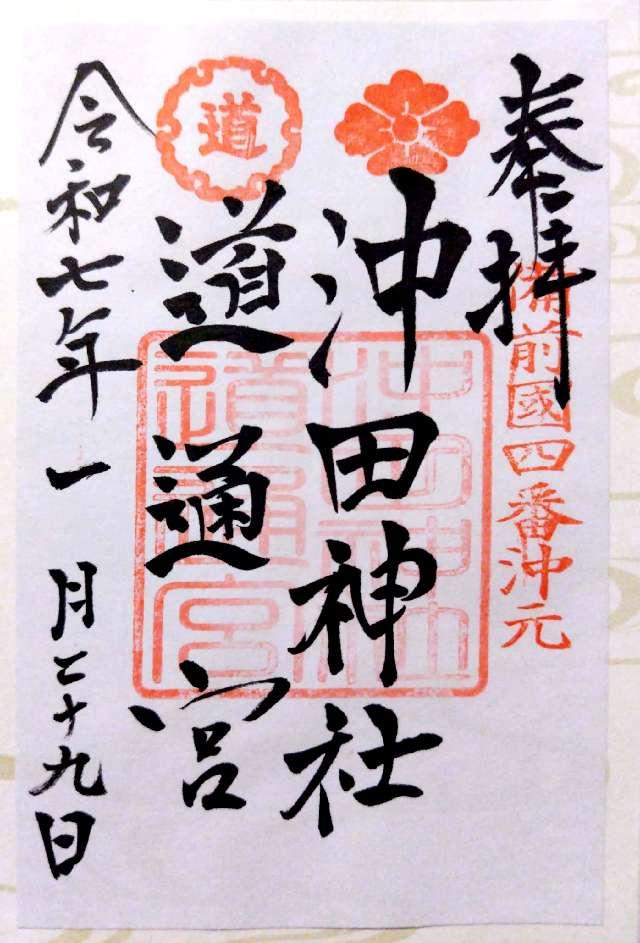 奉拝
備前國四番沖元
沖田神社
道
道通宮
沖田神社
道通宮
令和七年一月二十九日